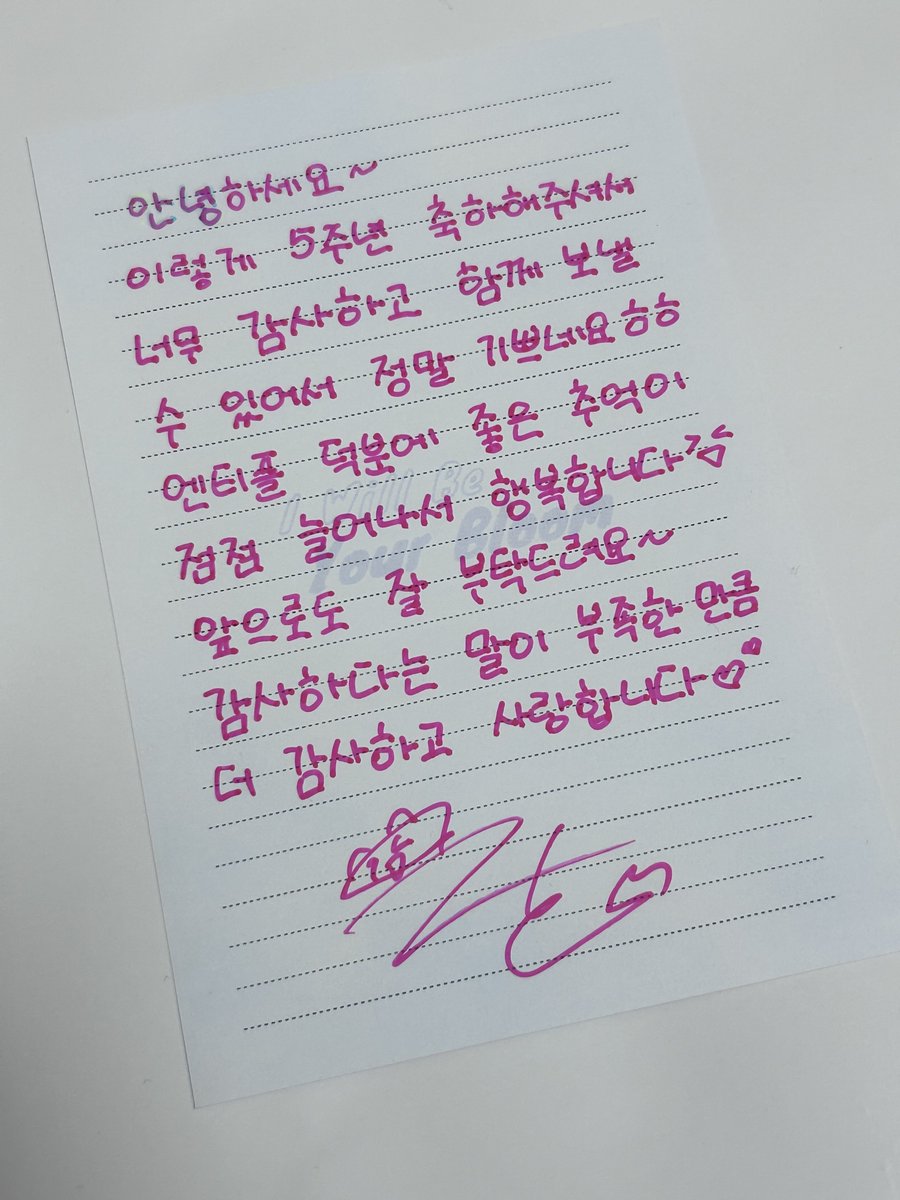 안녕하세요~
이렇게 5주년 축하해주셔서
너무 감사하고 함께 보낼
수 있어서 정말 기쁘네요ㅎㅎ
엔티플 덕분에 좋은 추억이
점점 늘어나서 행복합니다
앞으로도 잘 부탁드려요~
감사하다는 말이 부족한 만큼
더 감사하고 사랑합니다♡♥
I Will Be
Your Bloom